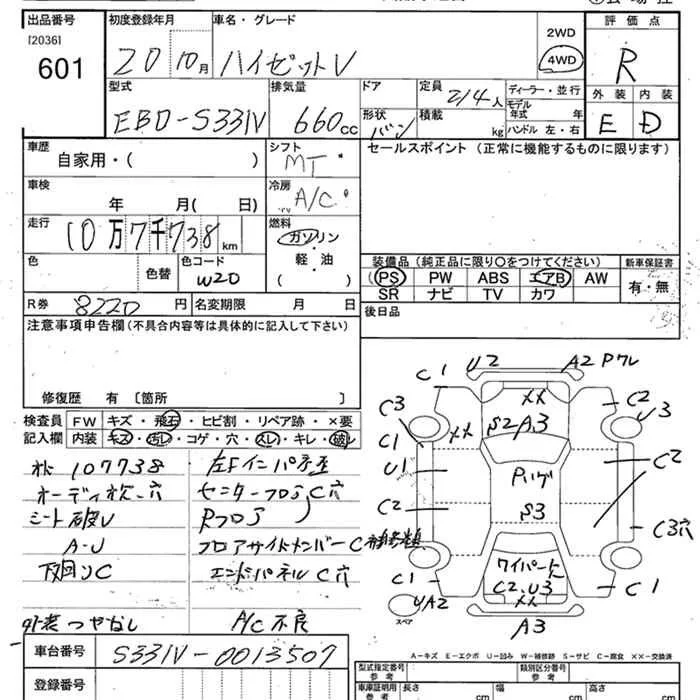 出品番号 初度登録年月 車名・グレード 評価点
[2036]
601 20 10月 ハイゼットV 2WD 4WD R
型式 排気量 ドア 定員 ディーラー・並行 外装 内装
EBD-S331V 660cc 2/4人 モデル年式 年
形状 バン 積載 kg ハンドル 左・右 E D
車歴 シフト セールスポイント(正常に機能するものに限ります)
自家用・( ) MT
車検 冷房
年 月( 日) A/C
走行 燃料
10万7千738km ガソリン
軽・油
( )
色 色替 色コード W20
装備品(純正品に限り〇をつけてください) 新車保証書
PS PW ABS エアB AW 有・無
SR ナビ TV カワ
R券 8220円 名変期限 月 日 後日品
注意事項申告欄(不具合内容等は具体的に記入して下さい)
修復歴 有 〔箇所 〕
検査員 FW キズ・飛石・ヒビ割・リペア跡・×要
記入欄 内装 キズ・汚レ・コゲ・穴・スレ・キレ・破レ
107738 左Fインパネ
オーディオ 穴 センターフロア C穴
シート破レ Rフロア
A-U フロアサイドメンバーC
下廻りC エンドパネルC穴
外装つやなし A/C不良
C1 U2 A2 Pワレ
C3 XX C2 U3
C1 XX S2 A3
U1 Pハゲ C2
C2 S3 C3穴
C1 ワイパー C1
C2.U3
XX
UA2 A3
スペア
A-キズ E-エクボ U-凹み W-補修跡 S-サビ C-腐食 XX-交換済
車台番号 S331V-0013507
型式指定番号 参考 類別区分番号 参考
登録番号 車庫証明用 参考 長さ cm 幅 cm 高さ cm